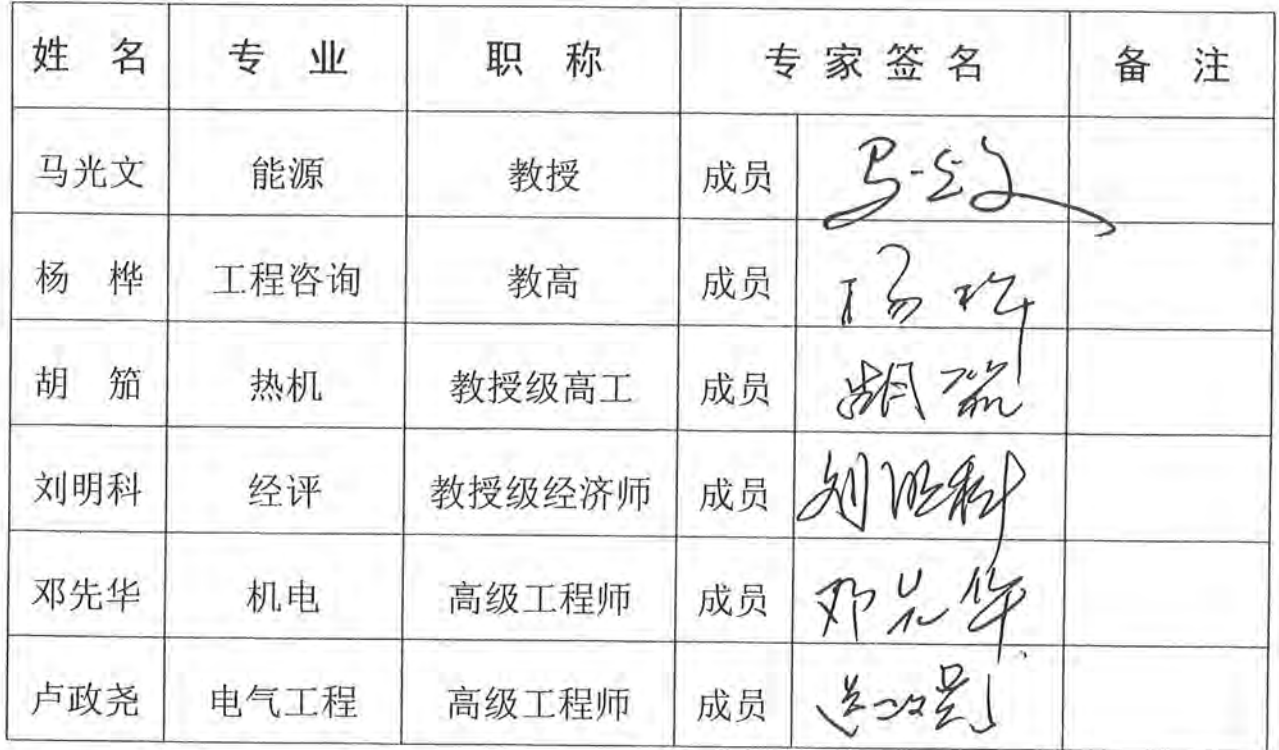 姓 名 专 业 职 称 专家签名 备 注
马光文 能源 教授 成员 马光文
杨 桦 工程咨询 教高 成员 杨桦
胡 笳 热机 教授级高工 成员 胡笳
刘明科 经评 教授级经济师 成员 刘明科
邓先华 机电 高级工程师 成员 邓先华
卢政尧 电气工程 高级工程师 成员